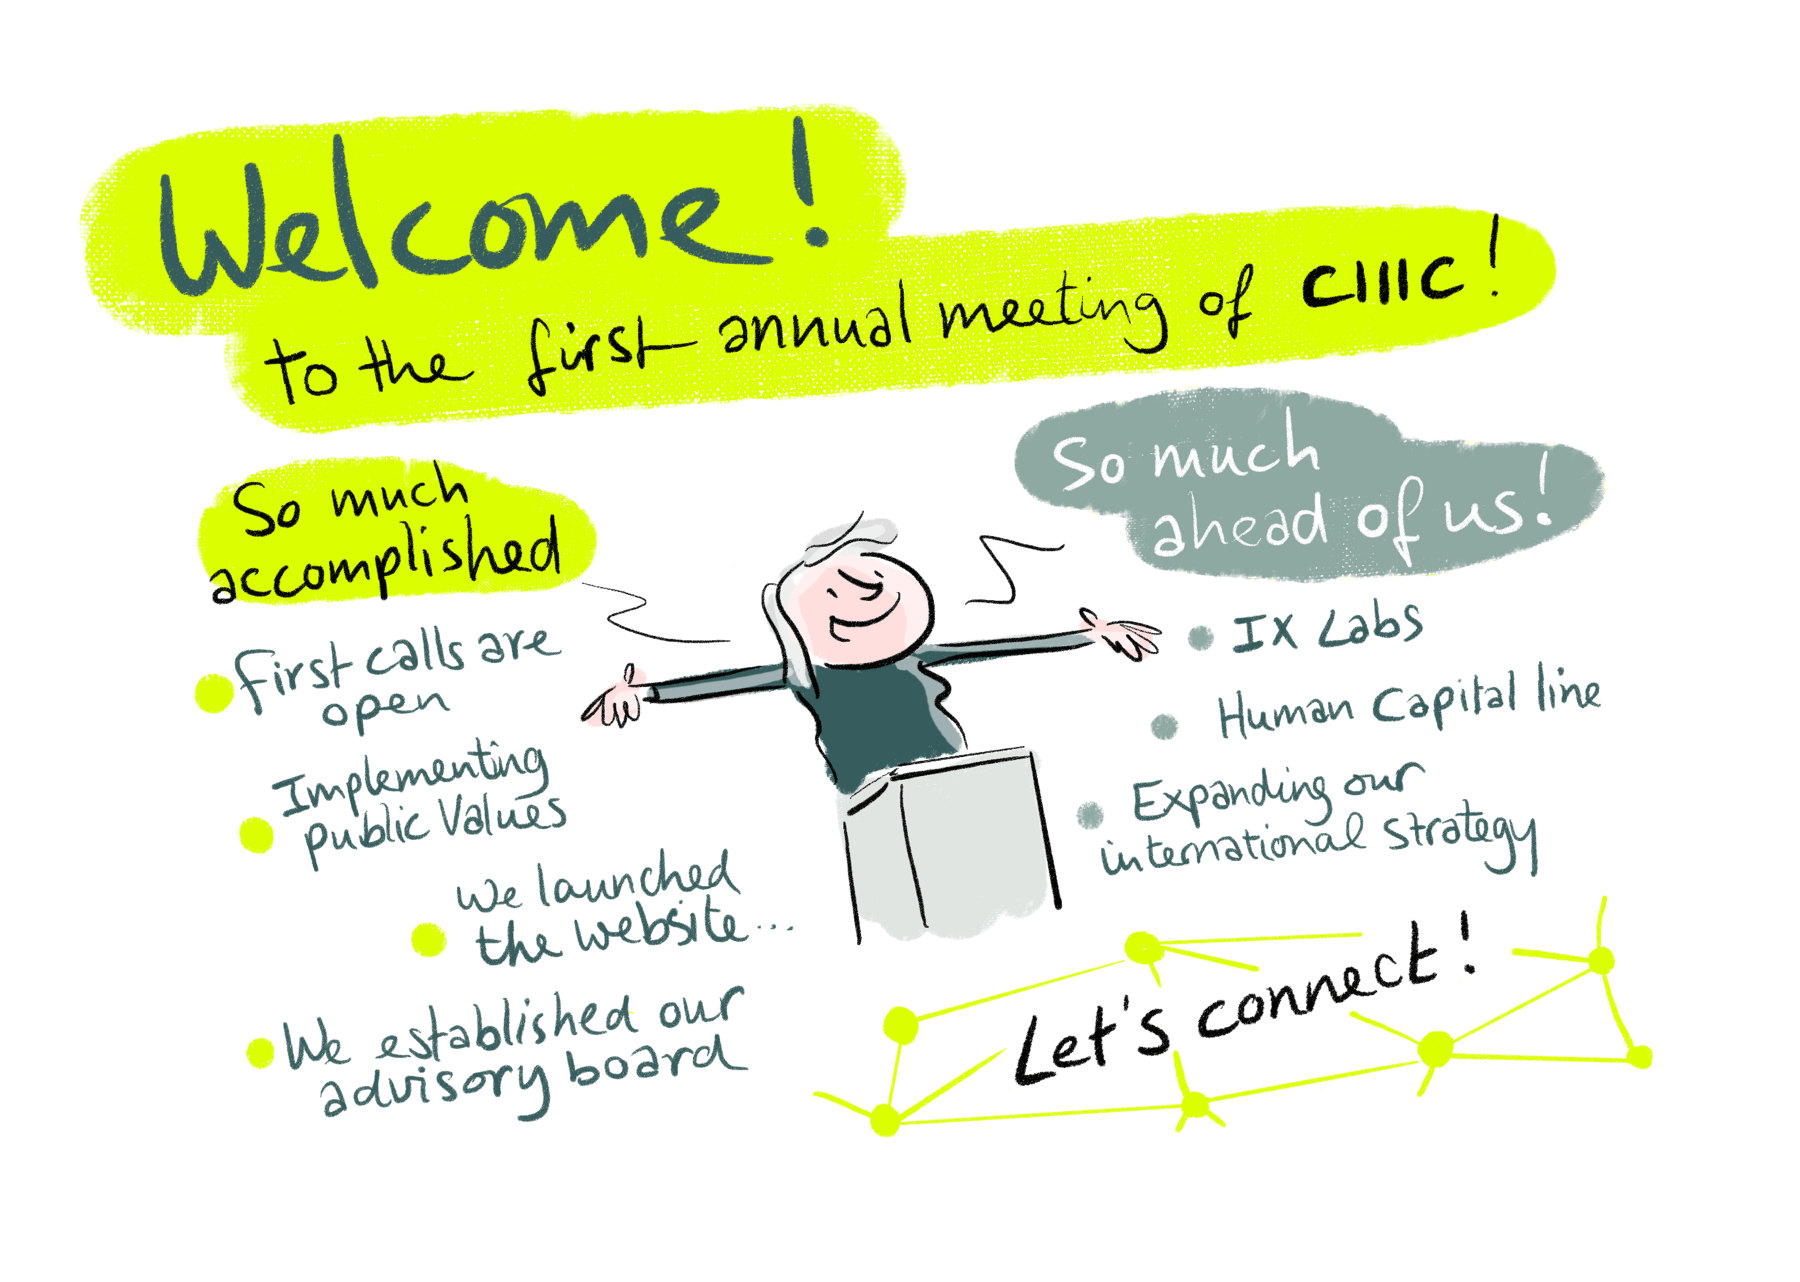 Welcome!
to the first annual meeting of CIIIC!
So much
accomplished
First calls are
open
Implementing
public values
We launched
the website...
We established our
advisory board
So much
ahead of us!
IX Labs
Human Capital line
Expanding our
international strategy
Let's connect!